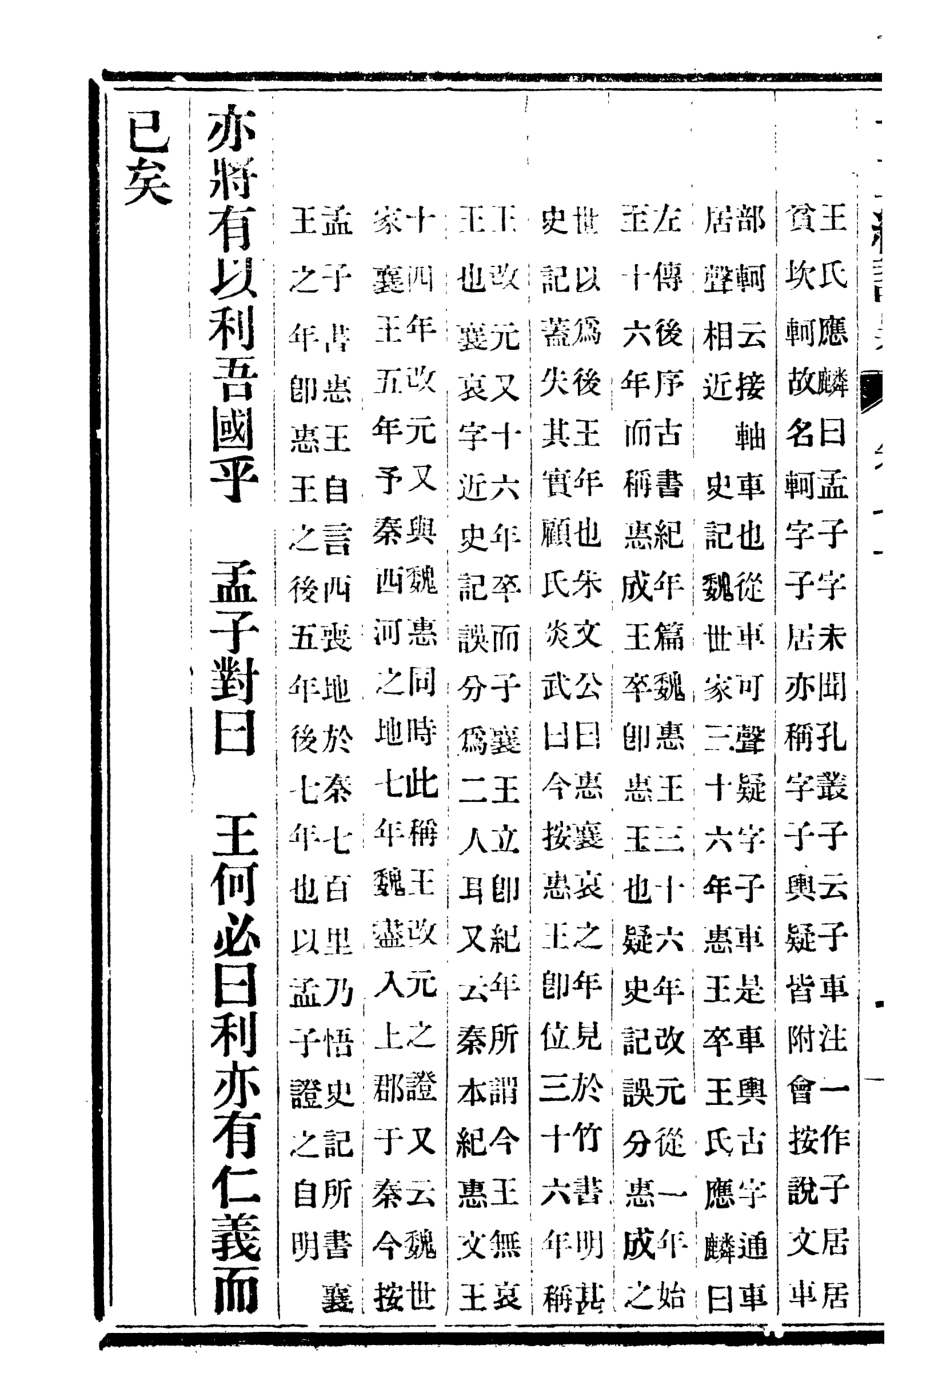 王氏應麟曰孟子字未聞孔叢子云子車注一作子居居
貧坎軻故名軻字子居亦稱字子輿疑皆附會按說文車
部軻云接軸車也從車可聲疑字子車是車輿古字通車
居聲相近 史記魏世家三十六年惠王卒王氏應麟曰
左傳後序古書紀年篇魏惠王三十六年改元從一年始
至十六年而稱惠成王卒卽惠王也疑史記誤分惠成之
世以爲後王年也朱文公曰惠襄哀之年見於竹書明甚
史記蓋失其實顧氏炎武曰今按惠王卽位三十六年稱
王改元又十六年卒而子襄王立卽紀年所謂今王無哀
王也襄哀字近史記誤分爲二人耳又云秦本紀惠文王
十四年改元又與魏惠同時此稱王改元之證又云魏世
家襄王五年予秦西河之地七年魏盡入上郡于秦今按
孟子書惠王自言西喪地於秦七百里乃悟史記所書襄
王之年卽惠王之後五年後七年也以孟子證之自明
亦將有以利吾國乎 孟子對曰 王何必曰利亦有仁義而
已矣